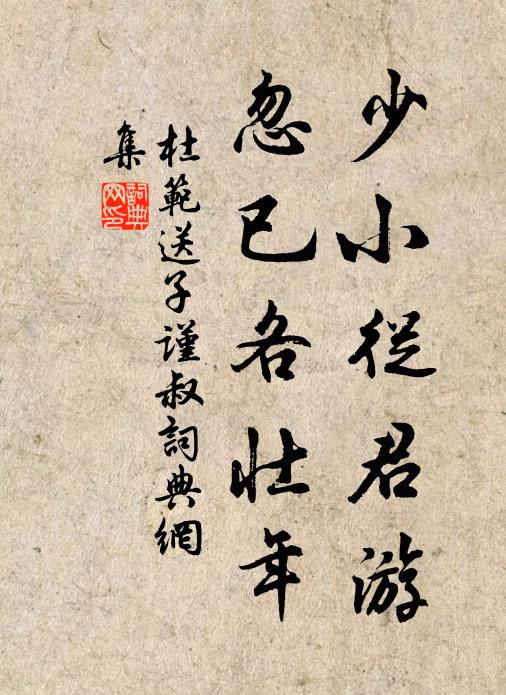 少小從君游
忽已各壯年
杜範送子謹叔詞典網
集
詞典网印